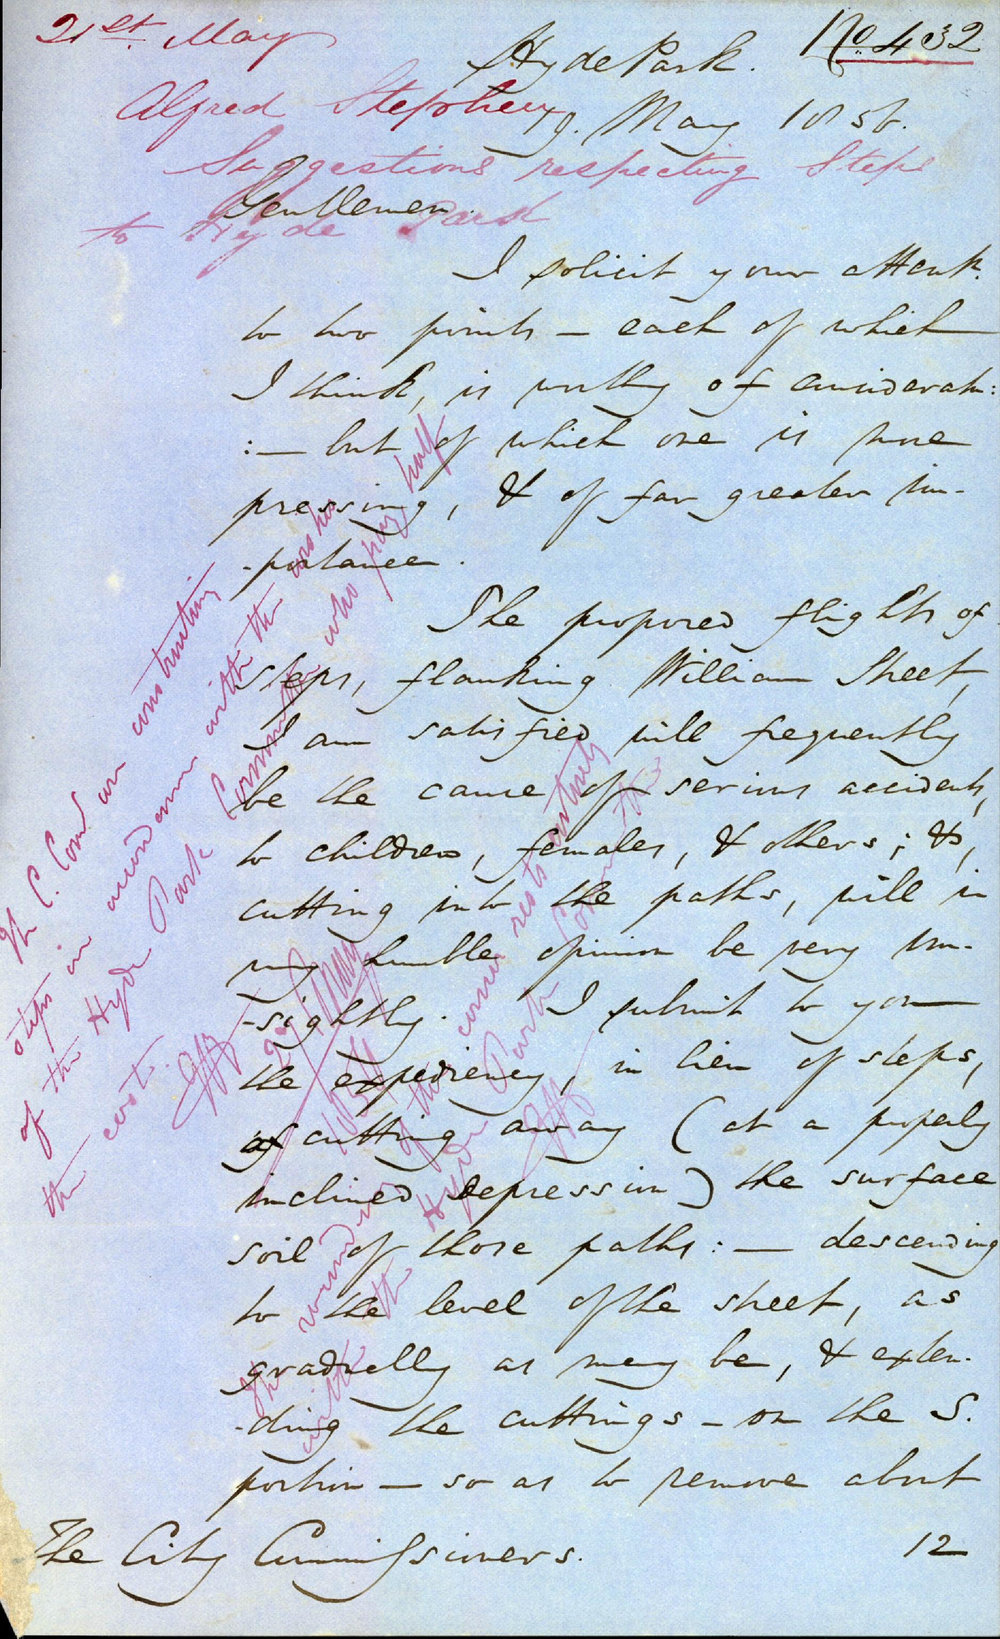 21st. May
No. 432
Hyde Park.
Alfred Stephen
19. May 1856.
Suggestions respecting Steps
Gentlemen.
to Hyde Park
I solicit your attentn.
to two points — each of which
I think, is worthy of consideratn:
:— but of which one is more
pressing, & of far greater im-
-portance.
The proposed flights of
steps, flanking William Street,
I am satisfied will frequently
be the cause of serious accidents,
to children, females, & others; &,
cutting into the paths, will in
my humble opinion be very un-
-sightly. I submit to you
the expediency, in lieu of steps,
of cutting away (at a properly
inclined depression) the surface
soil of those paths: — descending
to the level of the street, as
gradually as may be, & exten-
-ding the cuttings — on the S.
portion — so as to remove about
The City Commissioners.
12
The C. Comrs are constructing
steps in accordance with the wishes
of the Hyde Park Committee who pay half
the cost.
29 May
The
of the course rests entirely
with the Hyde Park